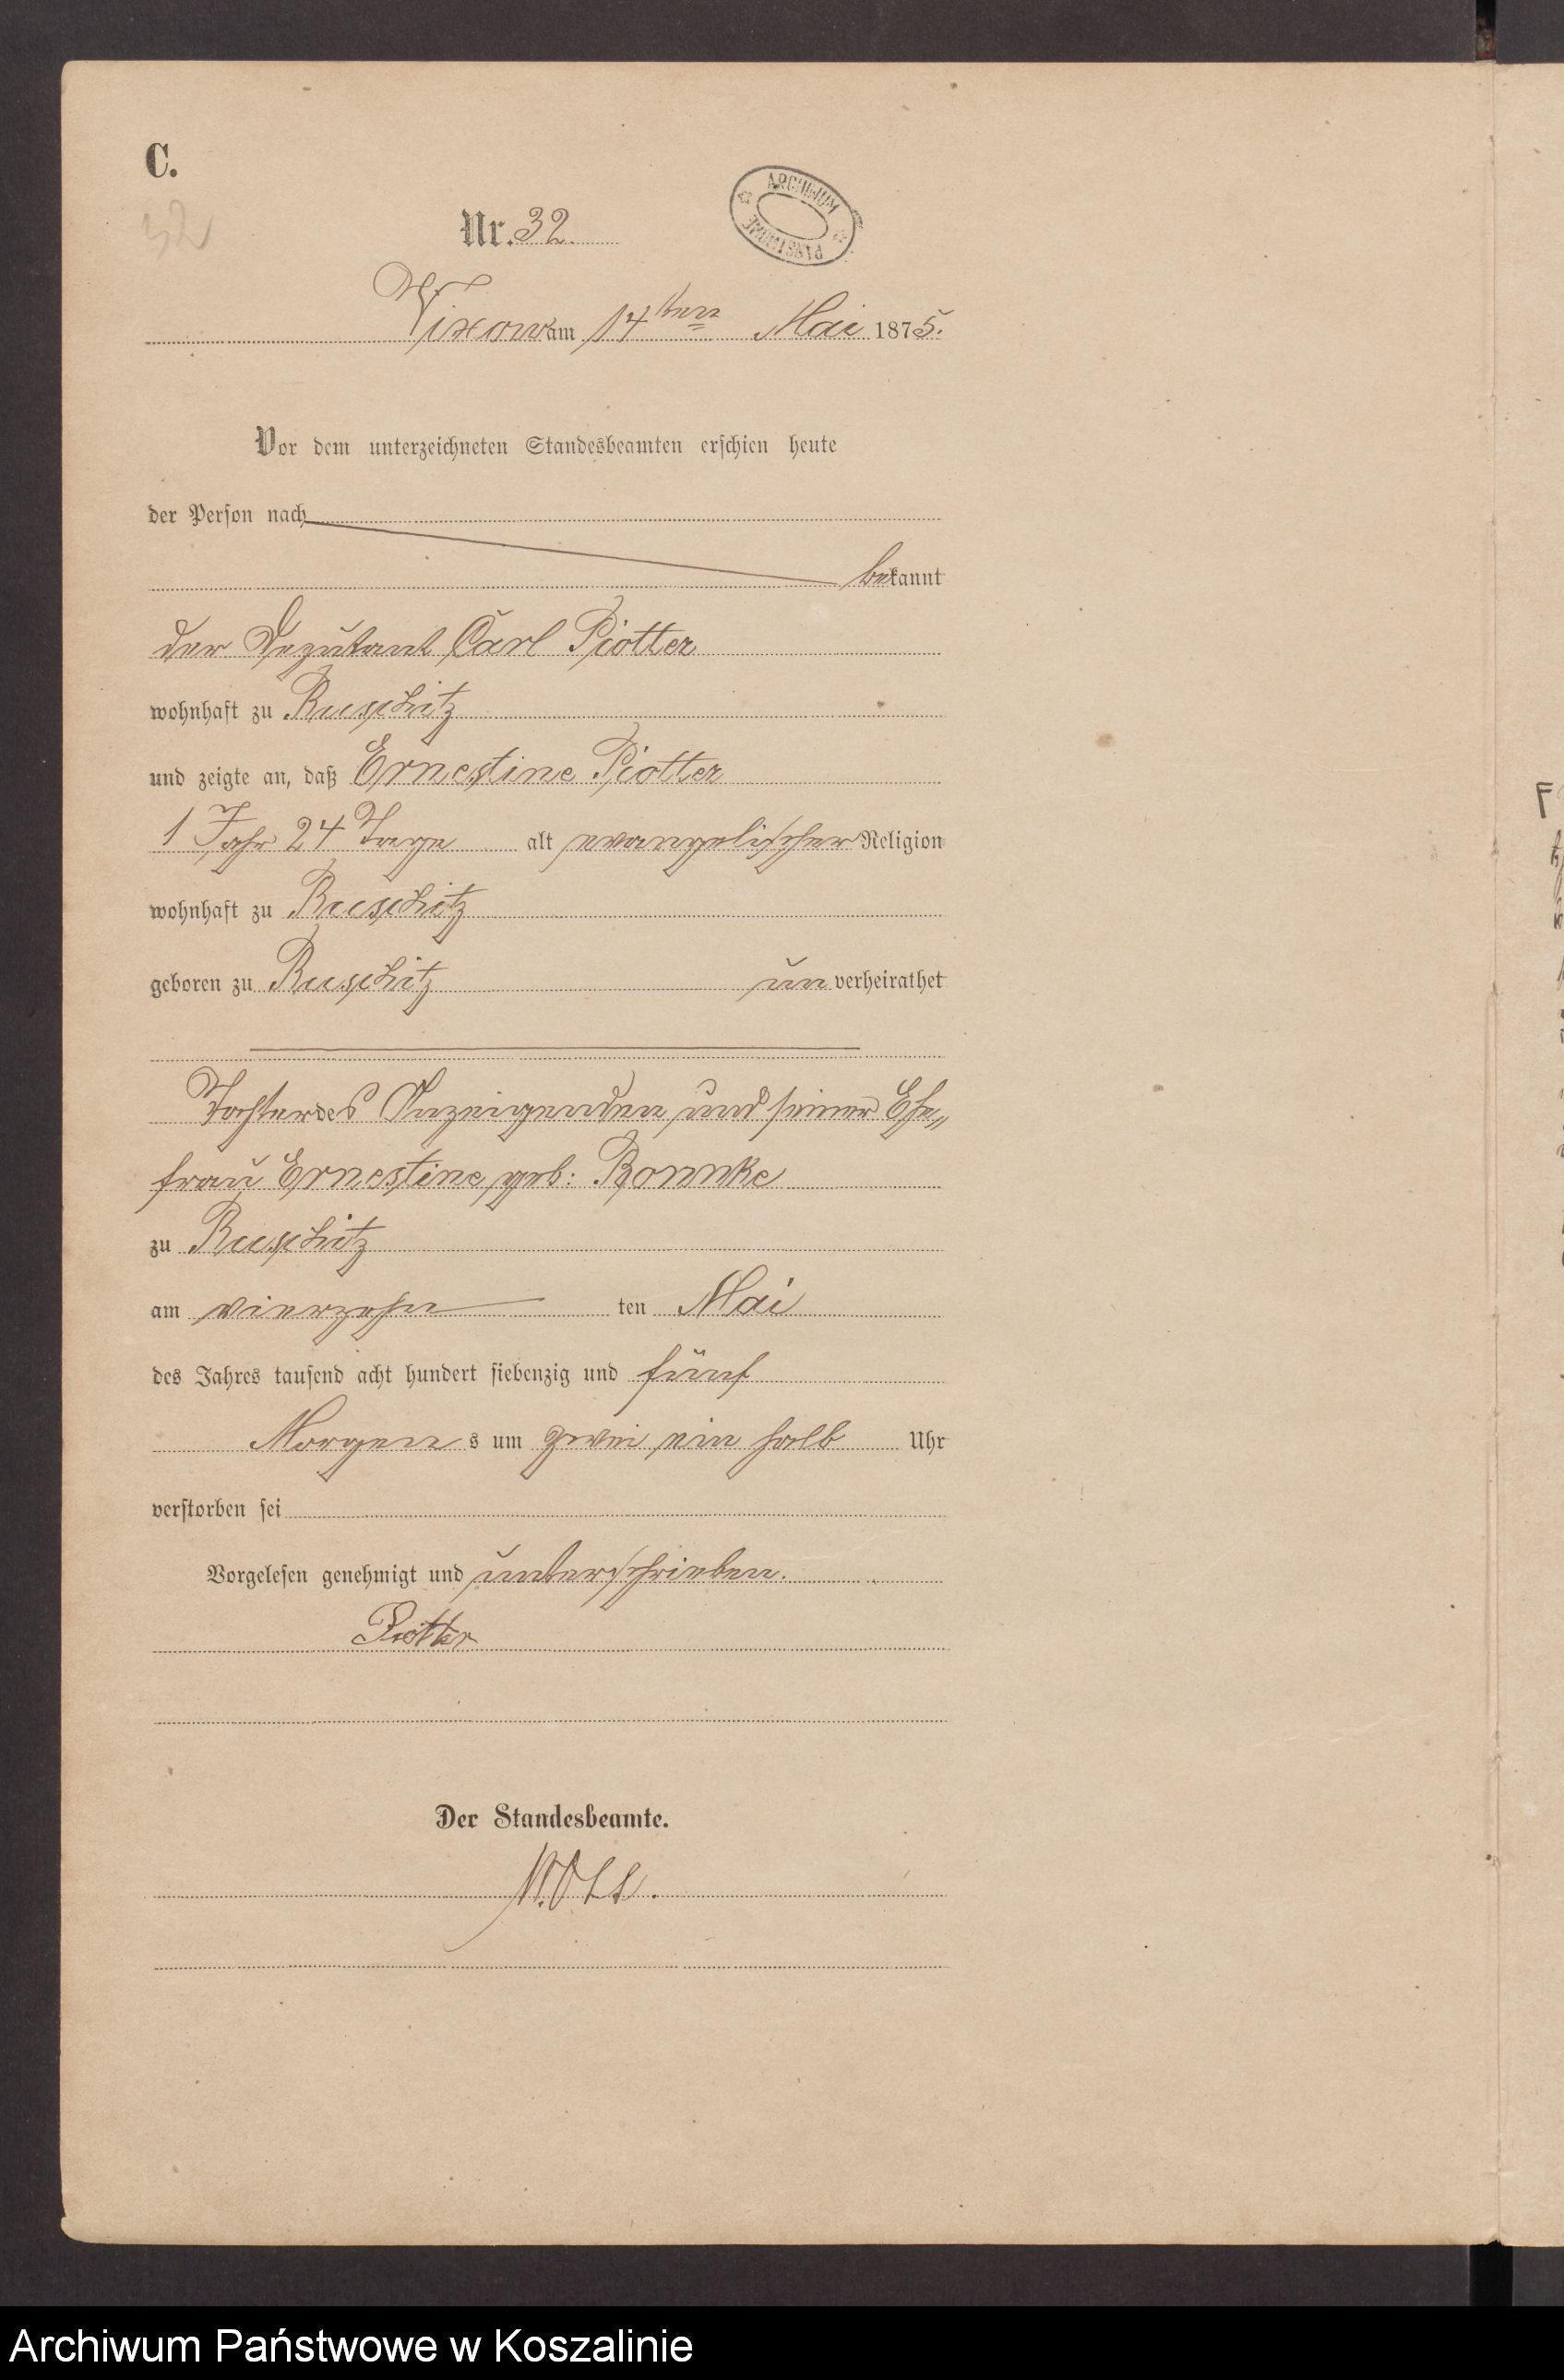 C.
32
Nr. 32.
ARCHIWUM PAŃSTWOWE
Vixow am 14ten Mai 1875.
Vor dem unterzeichneten Standesbeamten erschien heute
der Person nach
bekannt
der Deputant Carl Piotter
wohnhaft zu Ruschitz
und zeigte an, daß Ernestine Piotter
1 Jahr 24 Tage alt evangelischer Religion
wohnhaft zu Ruschitz
geboren zu Ruschitz unverheirathet
Tochter des Anzeigenden und seiner Ehe„
frau Ernestine geb: Ronnke
zu Ruschitz
am vierzehn ten Mai
des Jahres tausend acht hundert siebenzig und fünf
Morgens um zwei ein halb Uhr
verstorben sei
Vorgelesen genehmigt und unterschrieben.
Piotter
Der Standesbeamte.
Archiwum Państwowe w Koszalinie